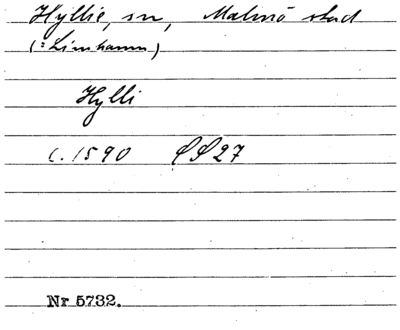 Hyllie, sn, Malmö stad
(: Limhamn)
Hylli
c. 1590 ØS 27
Nr 5732.